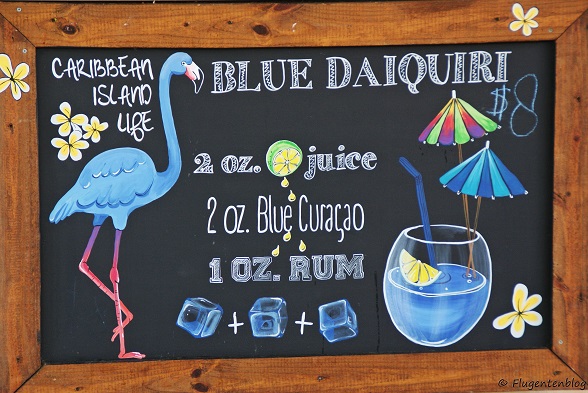 CARIBBEAN
ISLAND
LIFE
BLUE DAIQUIRI
$8
2 oz. juice
2 oz. Blue Curaçao
1 OZ. RUM
+ +
© Flugentenblog